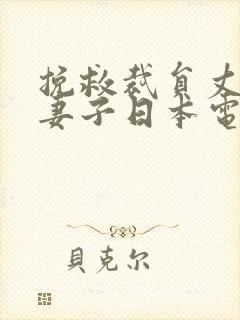 挽救裁負丈
妻子日本電
貝克尔